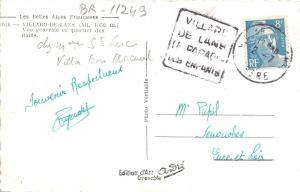 BR-11249
Les Belles Alpes Françaises
VILLARD-DE-LANS (Alt. 1050 m.)
Vue générale et quartier des
Bains.
chez mme St Luc
Villa Bon Accueil
Souvenir Respectueux
VILLARD
DE LANS
LE PARADIS
DES ENFANTS
8F
RF
Photo Véritable
Mr Pupil
Senonches
Eure et Loir
Edition d'Art André
Grenoble